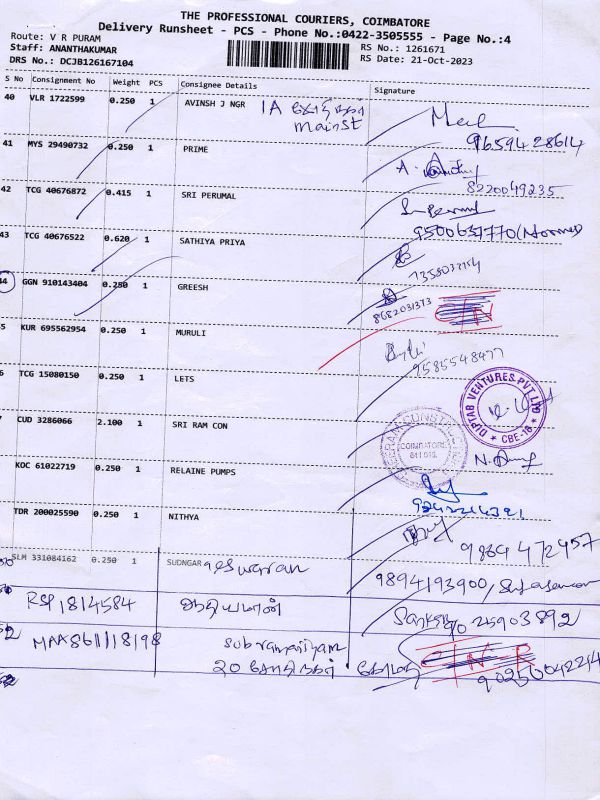 THE PROFESSIONAL COURIERS, COIMBATORE
Delivery Runsheet - PCS - Phone No.:0422-3505555 - Page No.:4
Route: V R PURAM
Staff: ANANTHAKUMAR
DRS No.: DCJB126167104
RS No.: 1261671
RS Date: 21-Oct-2023
S No Consignment No Weight PCS Consignee Details Signature
40 VLR 1722599 0.250 1 AVINSH J NGR 1A
Main St
9659428614
41 MYS 29490732 0.250 1 PRIME
8220049235
42 TCG 40676872 0.415 1 SRI PERUMAL
9500631770
43 TCG 40676522 0.620 1 SATHIYA PRIYA
44 GGN 910143404 0.250 1 GREESH
8682031373
5 KUR 695562954 0.250 1 MURULI
9585548477
6 TCG 15080150 0.250 1 LETS
DIPTAB VENTURES PVT LTD
CBE-18
7 CUD 3286066 2.100 1 SRI RAM CON
COIMBATORE
KOC 61022719 0.250 1 RELAINE PUMPS
TDR 200025590 0.250 1 NITHYA
9884472457
SLM 331084162 0.250 1 SUDNGAR
9894193900/
RSP 1814584 அதியமான்
9025903892
MAA 861118198 Subramaniyam
20
90250042214